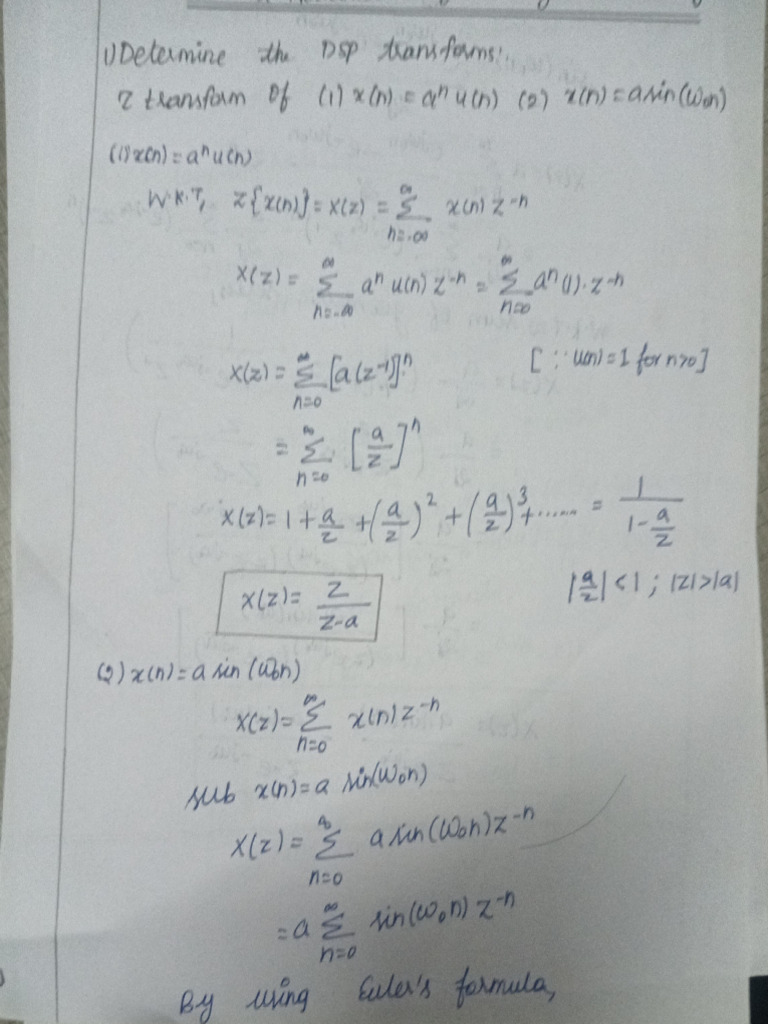 1) Determine the DSP transforms:
Z transform of (1) x(n) = aⁿ u(n) (2) x(n) = a sin(ω₀n)
(1) x(n) = aⁿ u(n)
W.K.T, Z{x(n)} = X(z) = ∞ Σ n=-∞ x(n) z⁻ⁿ
X(z) = ∞ Σ n=-∞ aⁿ u(n) z⁻ⁿ = ∞ Σ n=0 aⁿ (1). z⁻ⁿ
X(z) = ∞ Σ n=0 [a(z⁻¹)]ⁿ [∵ u(n) = 1 for n>0]
= ∞ Σ n=0 [a/z]ⁿ
X(z) = 1 + a/z + (a/z)² + (a/z)³ + ...... = 1/(1 - a/z)
X(z) = z/(z-a) |a/z| < 1 ; |z| > |a|
(2) x(n) = a sin(ω₀n)
X(z) = ∞ Σ n=0 x(n) z⁻ⁿ
sub x(n) = a sin(ω₀n)
X(z) = ∞ Σ n=0 a sin(ω₀n) z⁻ⁿ
= a ∞ Σ n=0 sin(ω₀n) z⁻ⁿ
By using Euler's formula,